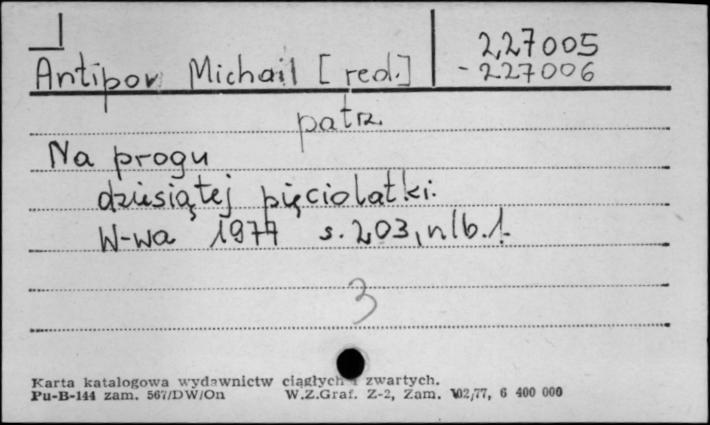 227005
Antipov Michail [red.] - 227006
patrz.
Na progu
dziesiątej pięciolatki.
W-wa 1977 s. 203, nlb. 1.
3
Karta katalogowa wydawnictw ciągłych i zwartych.
Pu-B-144 zam. 567/DW/On W.Z.Graf. Z-2, Zam. 102/77, 6 400 000